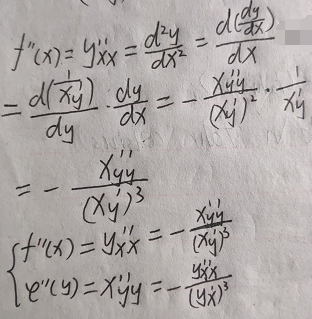 f''(x) = y''xx = d²y/dx² = d(dy/dx)/dx
= d(1/x'y)/dy · dy/dx = - x''yy/(x'y)² · 1/x'y
= - x''yy/(x'y)³
{ f''(x) = y''xx = - x''yy/(x'y)³
φ''(y) = x''yy = - y''xx/(y'x)³